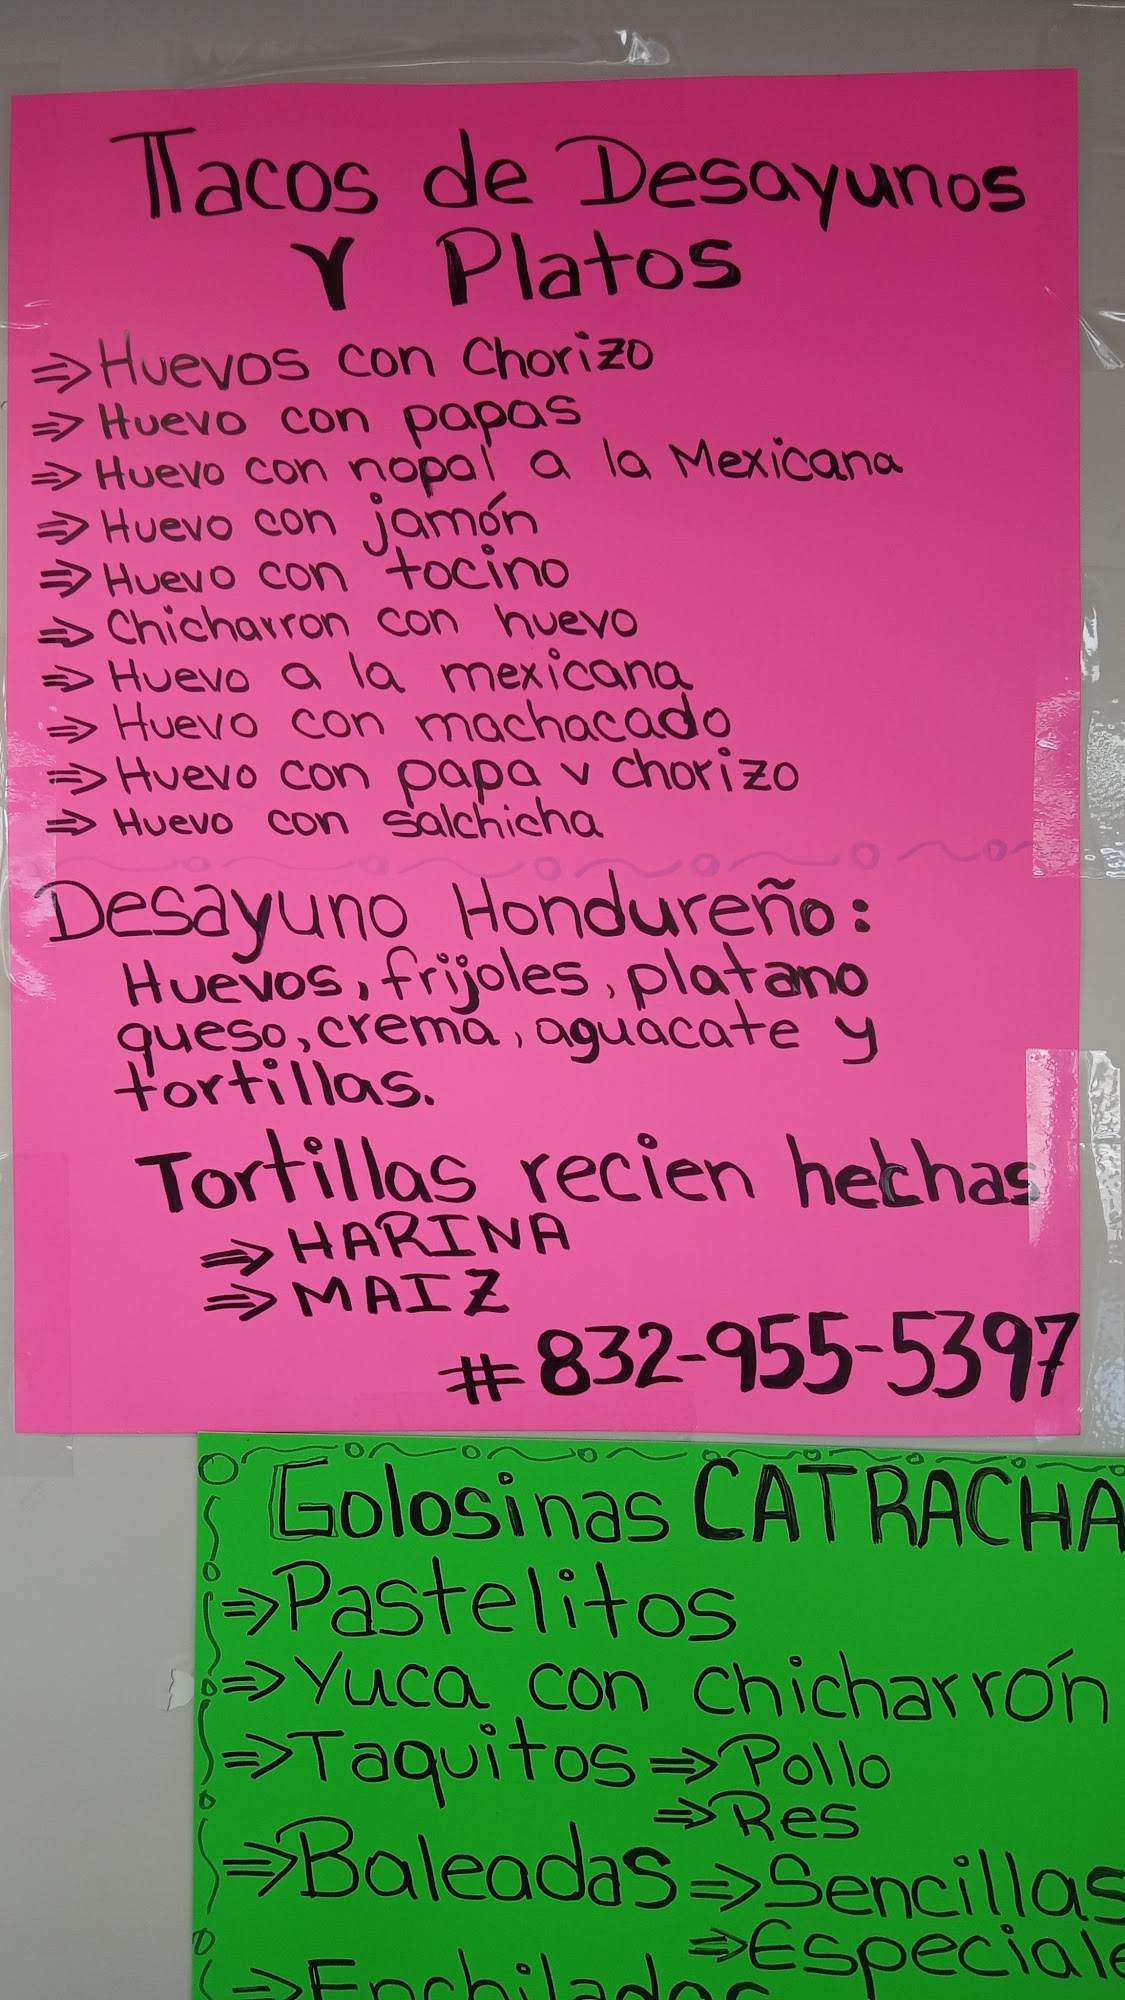 Tacos de Desayunos
Y Platos
⇒ Huevos con Chorizo
⇒ Huevo con papas
⇒ Huevo con nopal a la Mexicana
⇒ Huevo con jamón
⇒ Huevo con tocino
⇒ Chicharron con huevo
⇒ Huevo a la mexicana
⇒ Huevo con machacado
⇒ Huevo con papa y chorizo
⇒ Huevo con salchicha
Desayuno Hondureño:
Huevos, frijoles, platano
queso, crema, aguacate y
tortillas.
Tortillas recien hechas
⇒ HARINA
⇒ MAIZ
# 832-955-5397
Golosinas CATRACHA
⇒ Pastelitos
⇒ Yuca con chicharrón
⇒ Taquitos ⇒ Pollo
⇒ Res
⇒ Baleadas ⇒ Sencillas
⇒ Especiale
⇒ Enchiladas